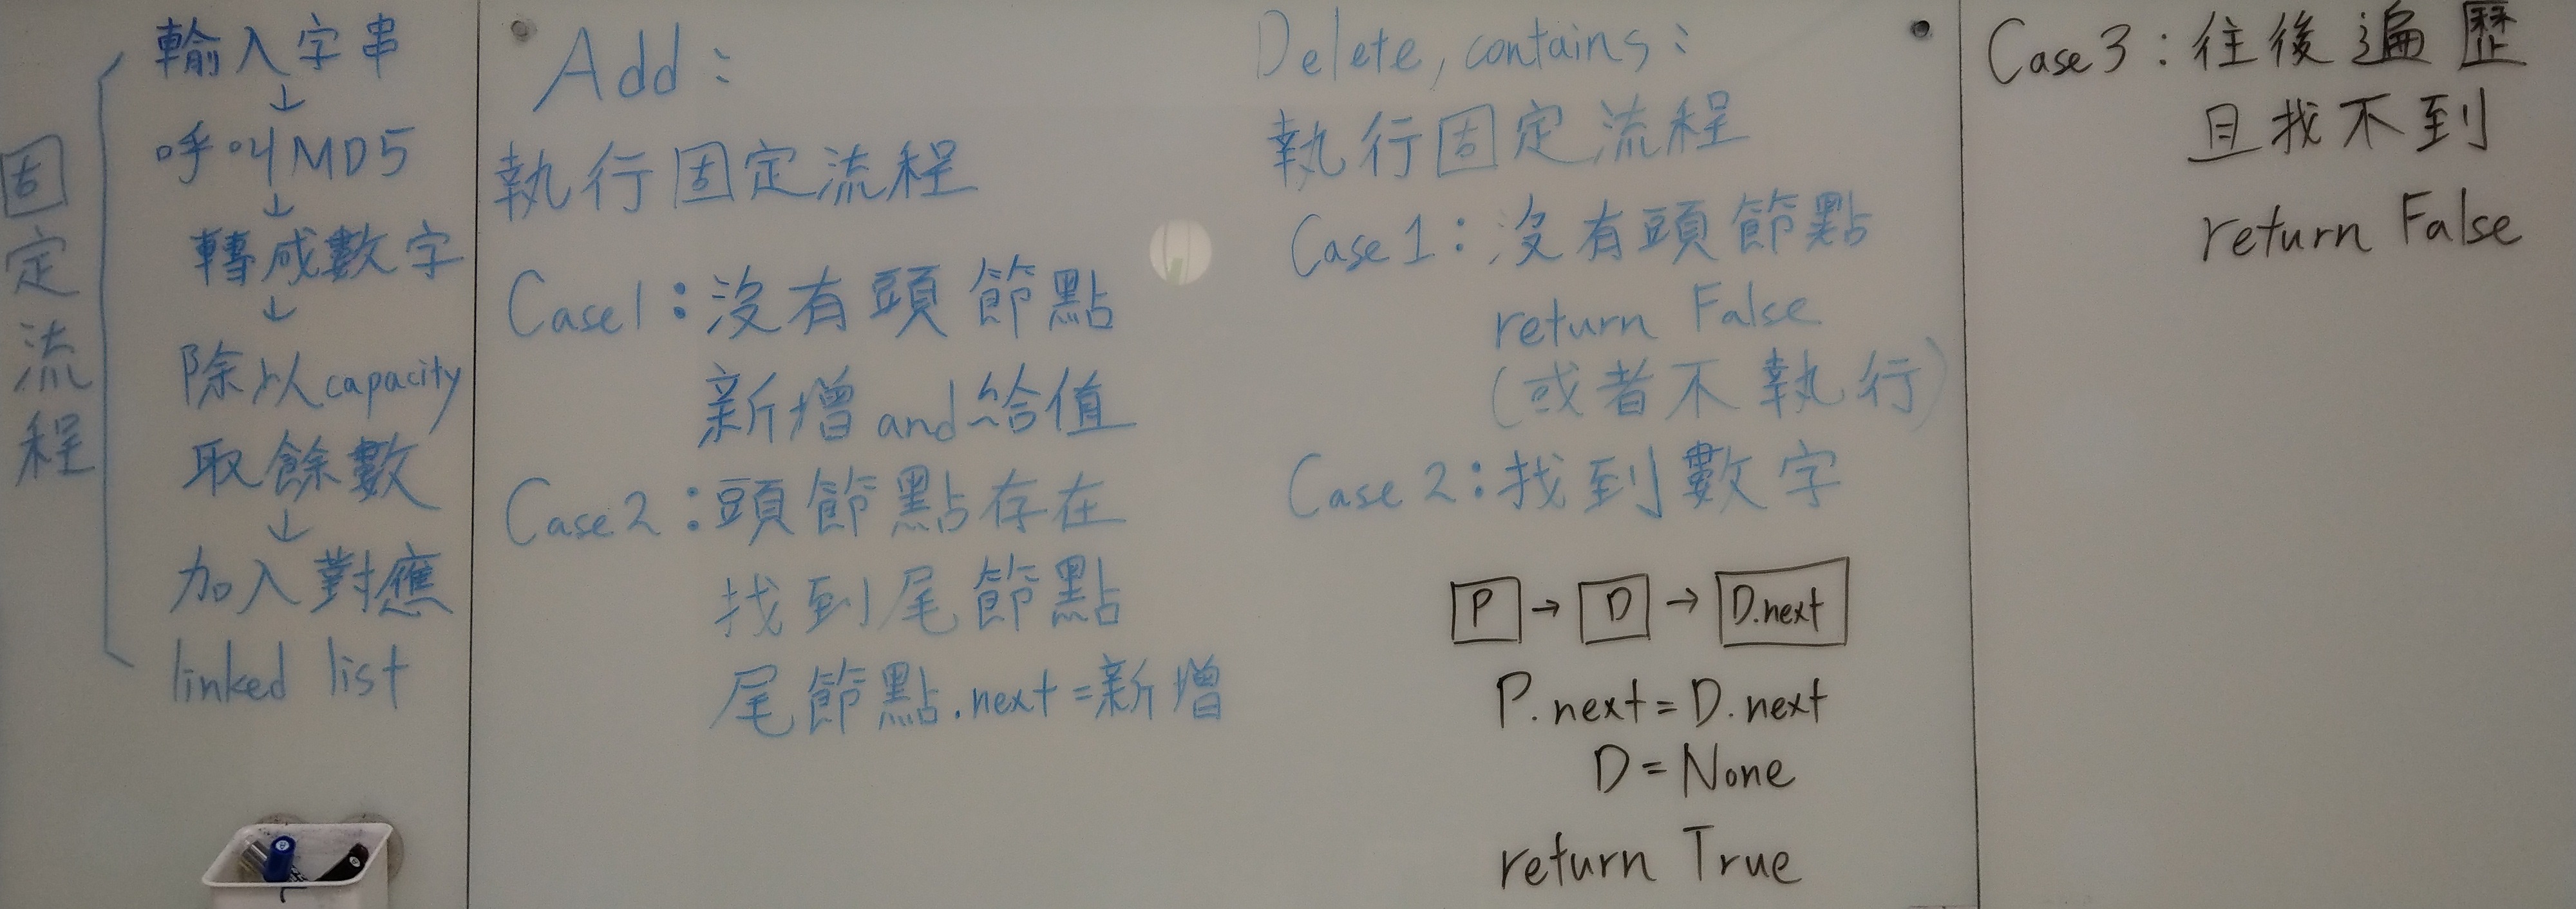 固定流程
輸入字串
↓
呼叫MD5
↓
轉成數字
↓
除以capacity
取餘數
↓
加入對應
linked list
Add:
執行固定流程
Case1:沒有頭節點
新增and給值
Case2:頭節點存在
找到尾節點
尾節點.next=新增
Delete, contains:
執行固定流程
Case1:沒有頭節點
return False
(或者不執行)
Case 2:找到數字
P → D → D.next
P.next=D.next
D=None
return True
Case3:往後遍歷
且找不到
return False